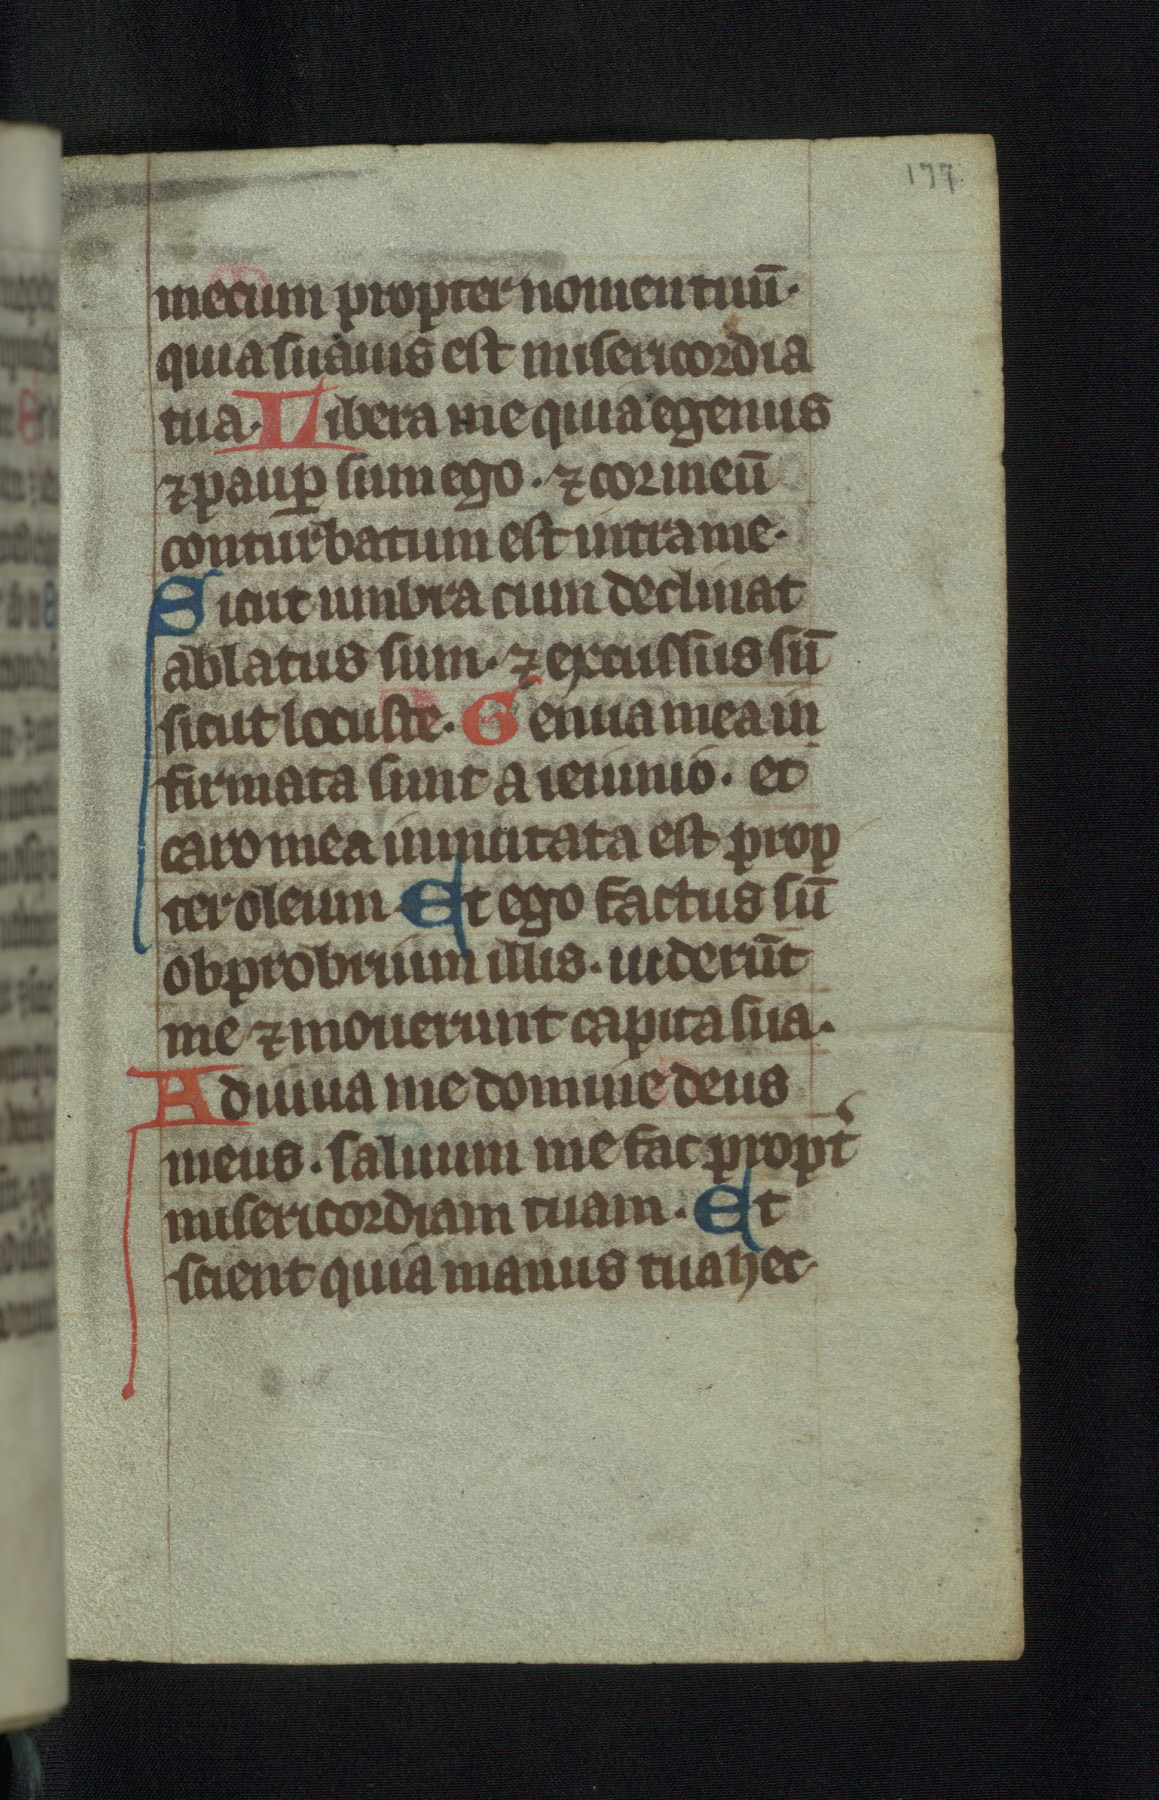 177
mecum propter nomen tuū·
quia suauis est misericordia
tua· Libera me quia egenus
⁊ paup̲ sum ego· ⁊ cor meū
conturbatum est intra me·
Sicut umbra cum declinat
ablatus sum· ⁊ excussus sū
sicut locuste· Genua mea in
firmata sunt a ieiunio· et
caro mea inmutata est prop
ter oleum Et ego factus sū
obprobrium illis· uiderūt
me ⁊ mouerunt capita sua·
Adiuua me domine deus
meus· saluum me fac propt᷑
misericordiam tuam· Et
scient quia manus tua hec